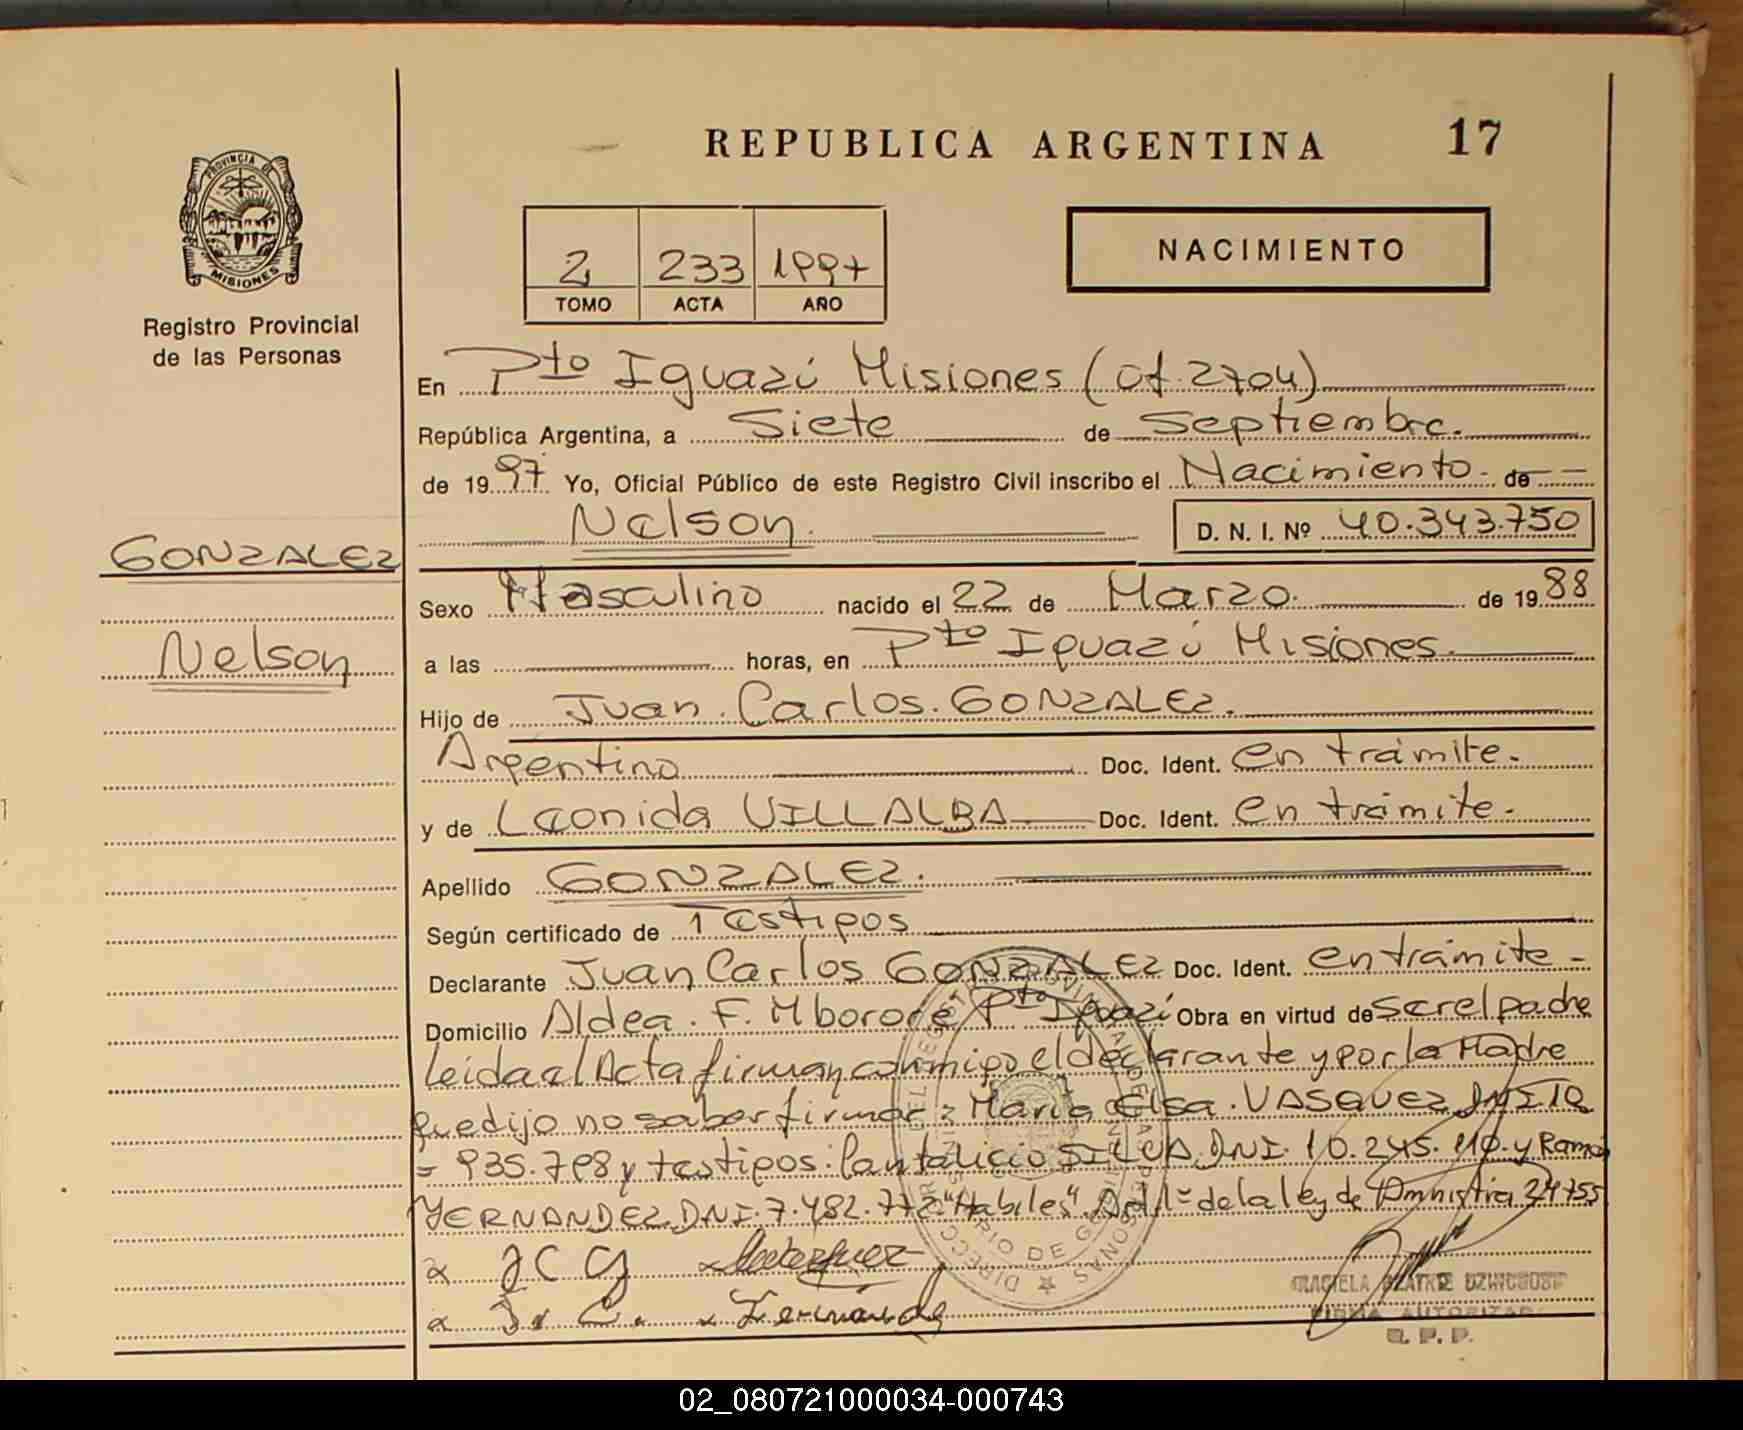 REPUBLICA ARGENTINA 17
PROVINCIA DE
MISIONES
Registro Provincial
de las Personas
2 233 1997
TOMO ACTA AÑO
NACIMIENTO
En Pto Iguazú Misiones (Of. 2704)
República Argentina, a Siete de Septiembre.
de 1997 Yo, Oficial Público de este Registro Civil inscribo el Nacimiento. de
Nelson. D. N. I. Nº 40.343.750
GONZALEZ
Nelson
Sexo Masculino nacido el 22 de Marzo. de 1988
a las horas, en Pto Iguazú Misiones.
Hijo de Juan. Carlos. GONZALEZ.
Argentino Doc. Ident. en trámite.
y de Leonida VILLALBA Doc. Ident. en trámite.
Apellido GONZALEZ.
Según certificado de Testigos
Declarante Juan Carlos GONZALEZ Doc. Ident. en trámite
Domicilio Aldea. F. Mbororé Pto Iguazú Obra en virtud de ser el padre
Leida el Acta firman conmigo el declarante y por la Madre
que dijo no saber firmar: Maria Elsa. VASQUEZ DNI 10
= 935.798 y testigos: Pantalicio SILVA DNI. 10.245.110. y Ramón
FERNANDEZ DNI. 7.482.772 "Habiles". Art 1º de la ley de Amnistia 24755
JCG
Fernande
GRACIELA BEATRIZ
FIRMA AUTORIZADA
R. P. P.
02_080721000034-000743